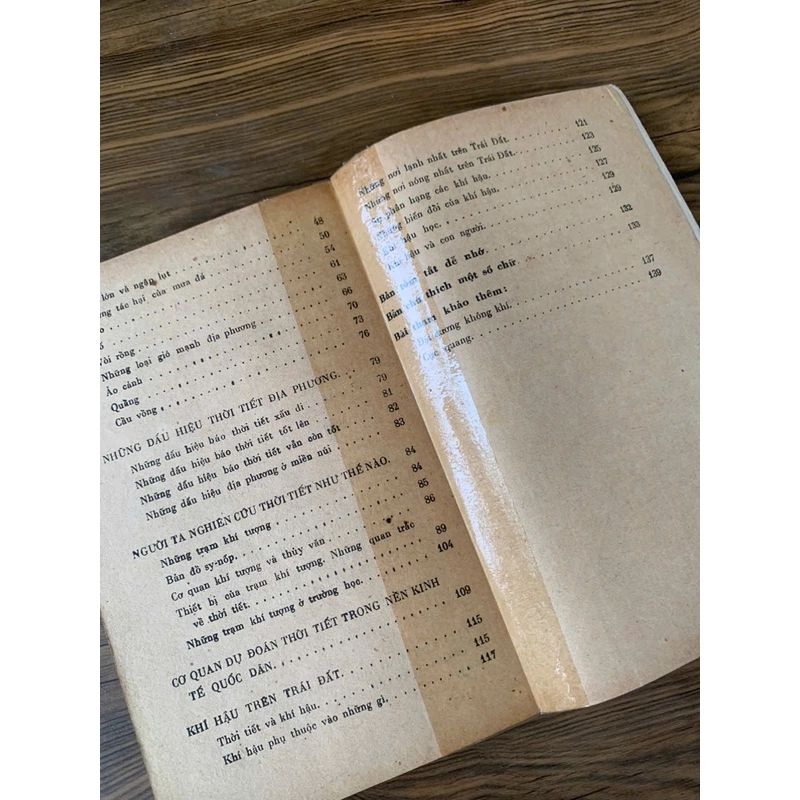 48
50
lớn và ngập lụt 54
tác hại của mưa đá 61
63
66
Vòi rồng 70
Những loại gió mạnh địa phương 73
Ảo cảnh 76
Quầng
Cầu vồng
NHỮNG DẤU HIỆU THỜI TIẾT ĐỊA PHƯƠNG. 79
Những dấu hiệu báo thời tiết xấu đi 79
Những dấu hiệu báo thời tiết tốt lên 81
Những dấu hiệu báo thời tiết vẫn còn tốt 82
Những dấu hiệu địa phương ở miền núi 83
NGƯỜI TA NGHIÊN CỨU THỜI TIẾT NHƯ THẾ NÀO. 84
Những trạm khí tượng 84
Bản đồ sy-nốp. 85
Cơ quan khí tượng và thủy văn 86
Thiết bị của trạm khí tượng. Những quan trắc
về thời tiết. 89
Những trạm khí tượng ở trường học. 104
CƠ QUAN DỰ ĐOÁN THỜI TIẾT TRONG NỀN KINH
TẾ QUỐC DÂN. 109
KHÍ HẬU TRÊN TRÁI ĐẤT. 115
Thời tiết và khí hậu. 115
Khí hậu phụ thuộc vào những gì. 117
Những nơi lạnh nhất trên Trái Đất. 121
Những nơi nóng nhất trên Trái Đất. 123
phân hạng các khí hậu. 125
Những biến đổi của khí hậu. 127
hậu học. 129
hậu và con người. 129
Bản tóm tắt để nhớ. 132
Bản chú thích một số chữ 133
Bài tham khảo thêm:
Đại dương không khí. 137
Cực quang. 139